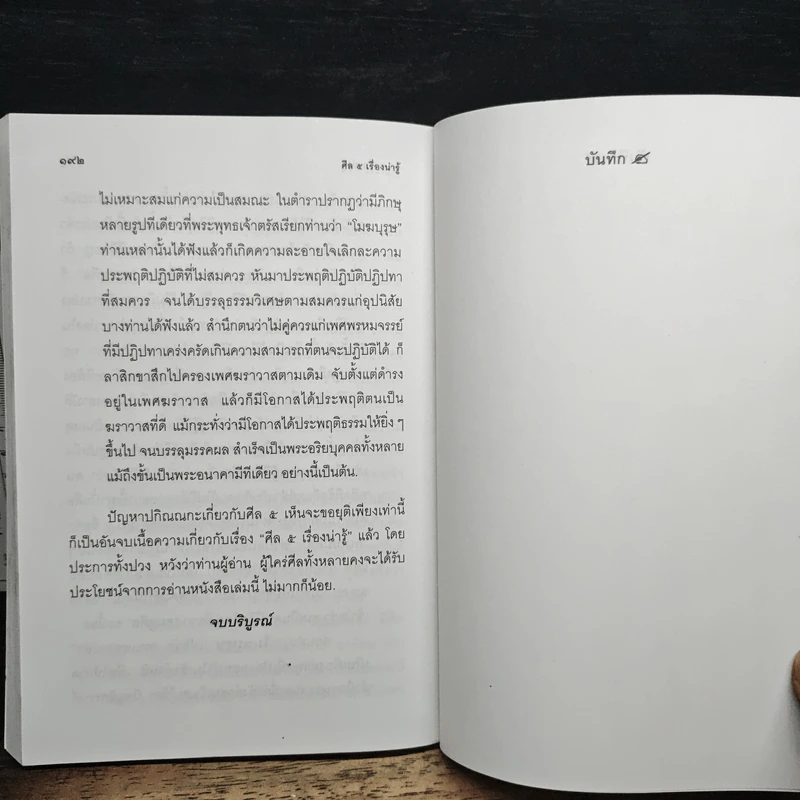 ๑๙๒
ศีล ๕ เรื่องน่ารู้
ไม่เหมาะสมแก่ความเป็นสมณะ ในตำราปรากฏว่ามีภิกษุ
หลายรูปทีเดียวที่พระพุทธเจ้าตรัสเรียกท่านว่า “โมฆบุรุษ”
ท่านเหล่านั้นได้ฟังแล้วก็เกิดความละอายใจเลิกละความ
ประพฤติปฏิบัติที่ไม่สมควร หันมาประพฤติปฏิบัติปฏิปทา
ที่สมควร จนได้บรรลุธรรมวิเศษตามสมควรแก่อุปนิสัย
บางท่านได้ฟังแล้ว สำนึกตนว่าไม่คู่ควรแก่เพศพรหมจรรย์
ที่มีปฏิปทาเคร่งครัดเกินความสามารถที่ตนจะปฏิบัติได้ ก็
ลาสิกขาสึกไปครองเพศฆราวาสตามเดิม จับตั้งแต่ดำรง
อยู่ในเพศฆราวาส แล้วก็มีโอกาสได้ประพฤติตนเป็น
ฆราวาสที่ดี แม้กระทั่งว่ามีโอกาสได้ประพฤติธรรมให้ยิ่ง ๆ
ขึ้นไป จนบรรลุมรรคผล สำเร็จเป็นพระอริยบุคคลทั้งหลาย
แม้ถึงขั้นเป็นพระอนาคามีทีเดียว อย่างนี้เป็นต้น.
ปัญหาปกิณณกะเกี่ยวกับศีล ๕ เห็นจะขอยุติเพียงเท่านี้
ก็เป็นอันจบเนื้อความเกี่ยวกับเรื่อง “ศีล ๕ เรื่องน่ารู้” แล้ว โดย
ประการทั้งปวง หวังว่าท่านผู้อ่าน ผู้ใคร่ศีลทั้งหลายคงจะได้รับ
ประโยชน์จากการอ่านหนังสือเล่มนี้ ไม่มากก็น้อย.
จบบริบูรณ์
บันทึก